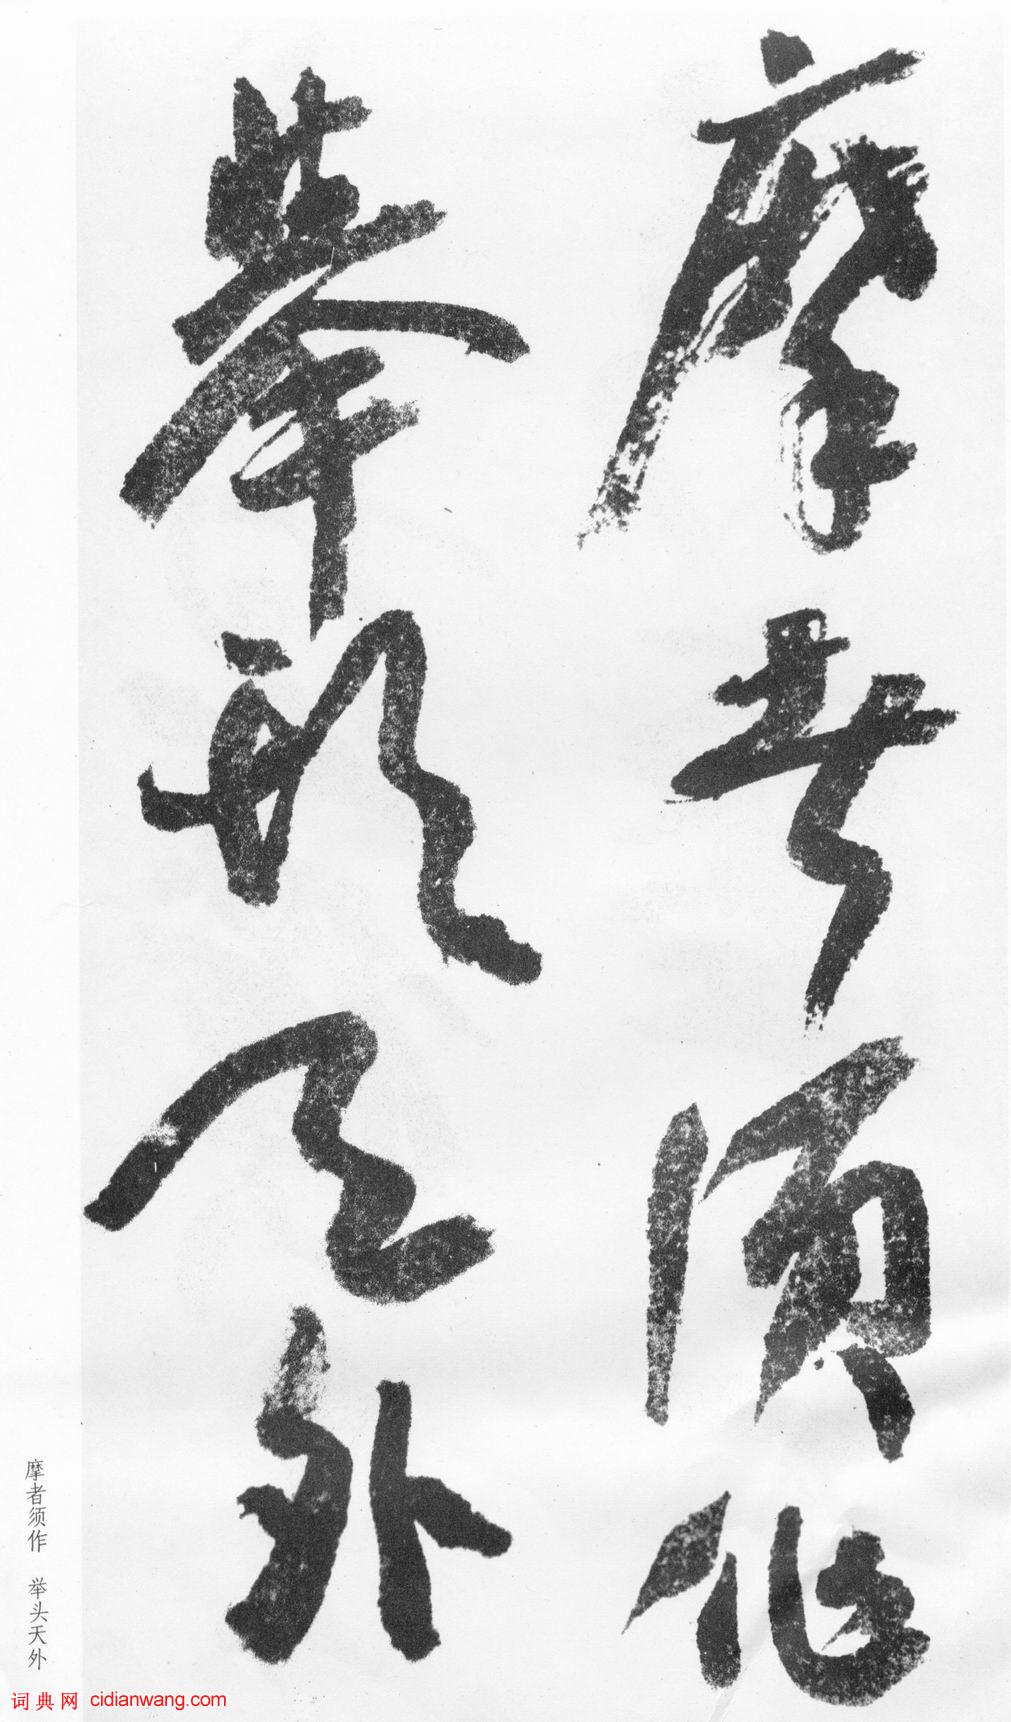 摩者須作
舉頭天外
摩者须作 举头天外
词典网 cidianwang.com